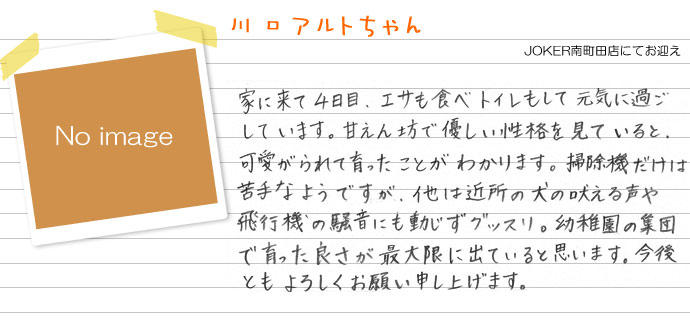 川口アルトちゃん
JOKER南町田店にてお迎え
No image
家に来て4日目、エサも食べトイレもして元気に過ご
しています。甘えん坊で優しい性格を見ていると、
可愛がられて育ったことがわかります。掃除機だけは
苦手なようですが、他は近所の犬の吠える声や
飛行機の騒音にも動じずグッスリ。幼稚園の集団
で育った良さが最大限に出ていると思います。今後
ともよろしくお願い申し上げます。